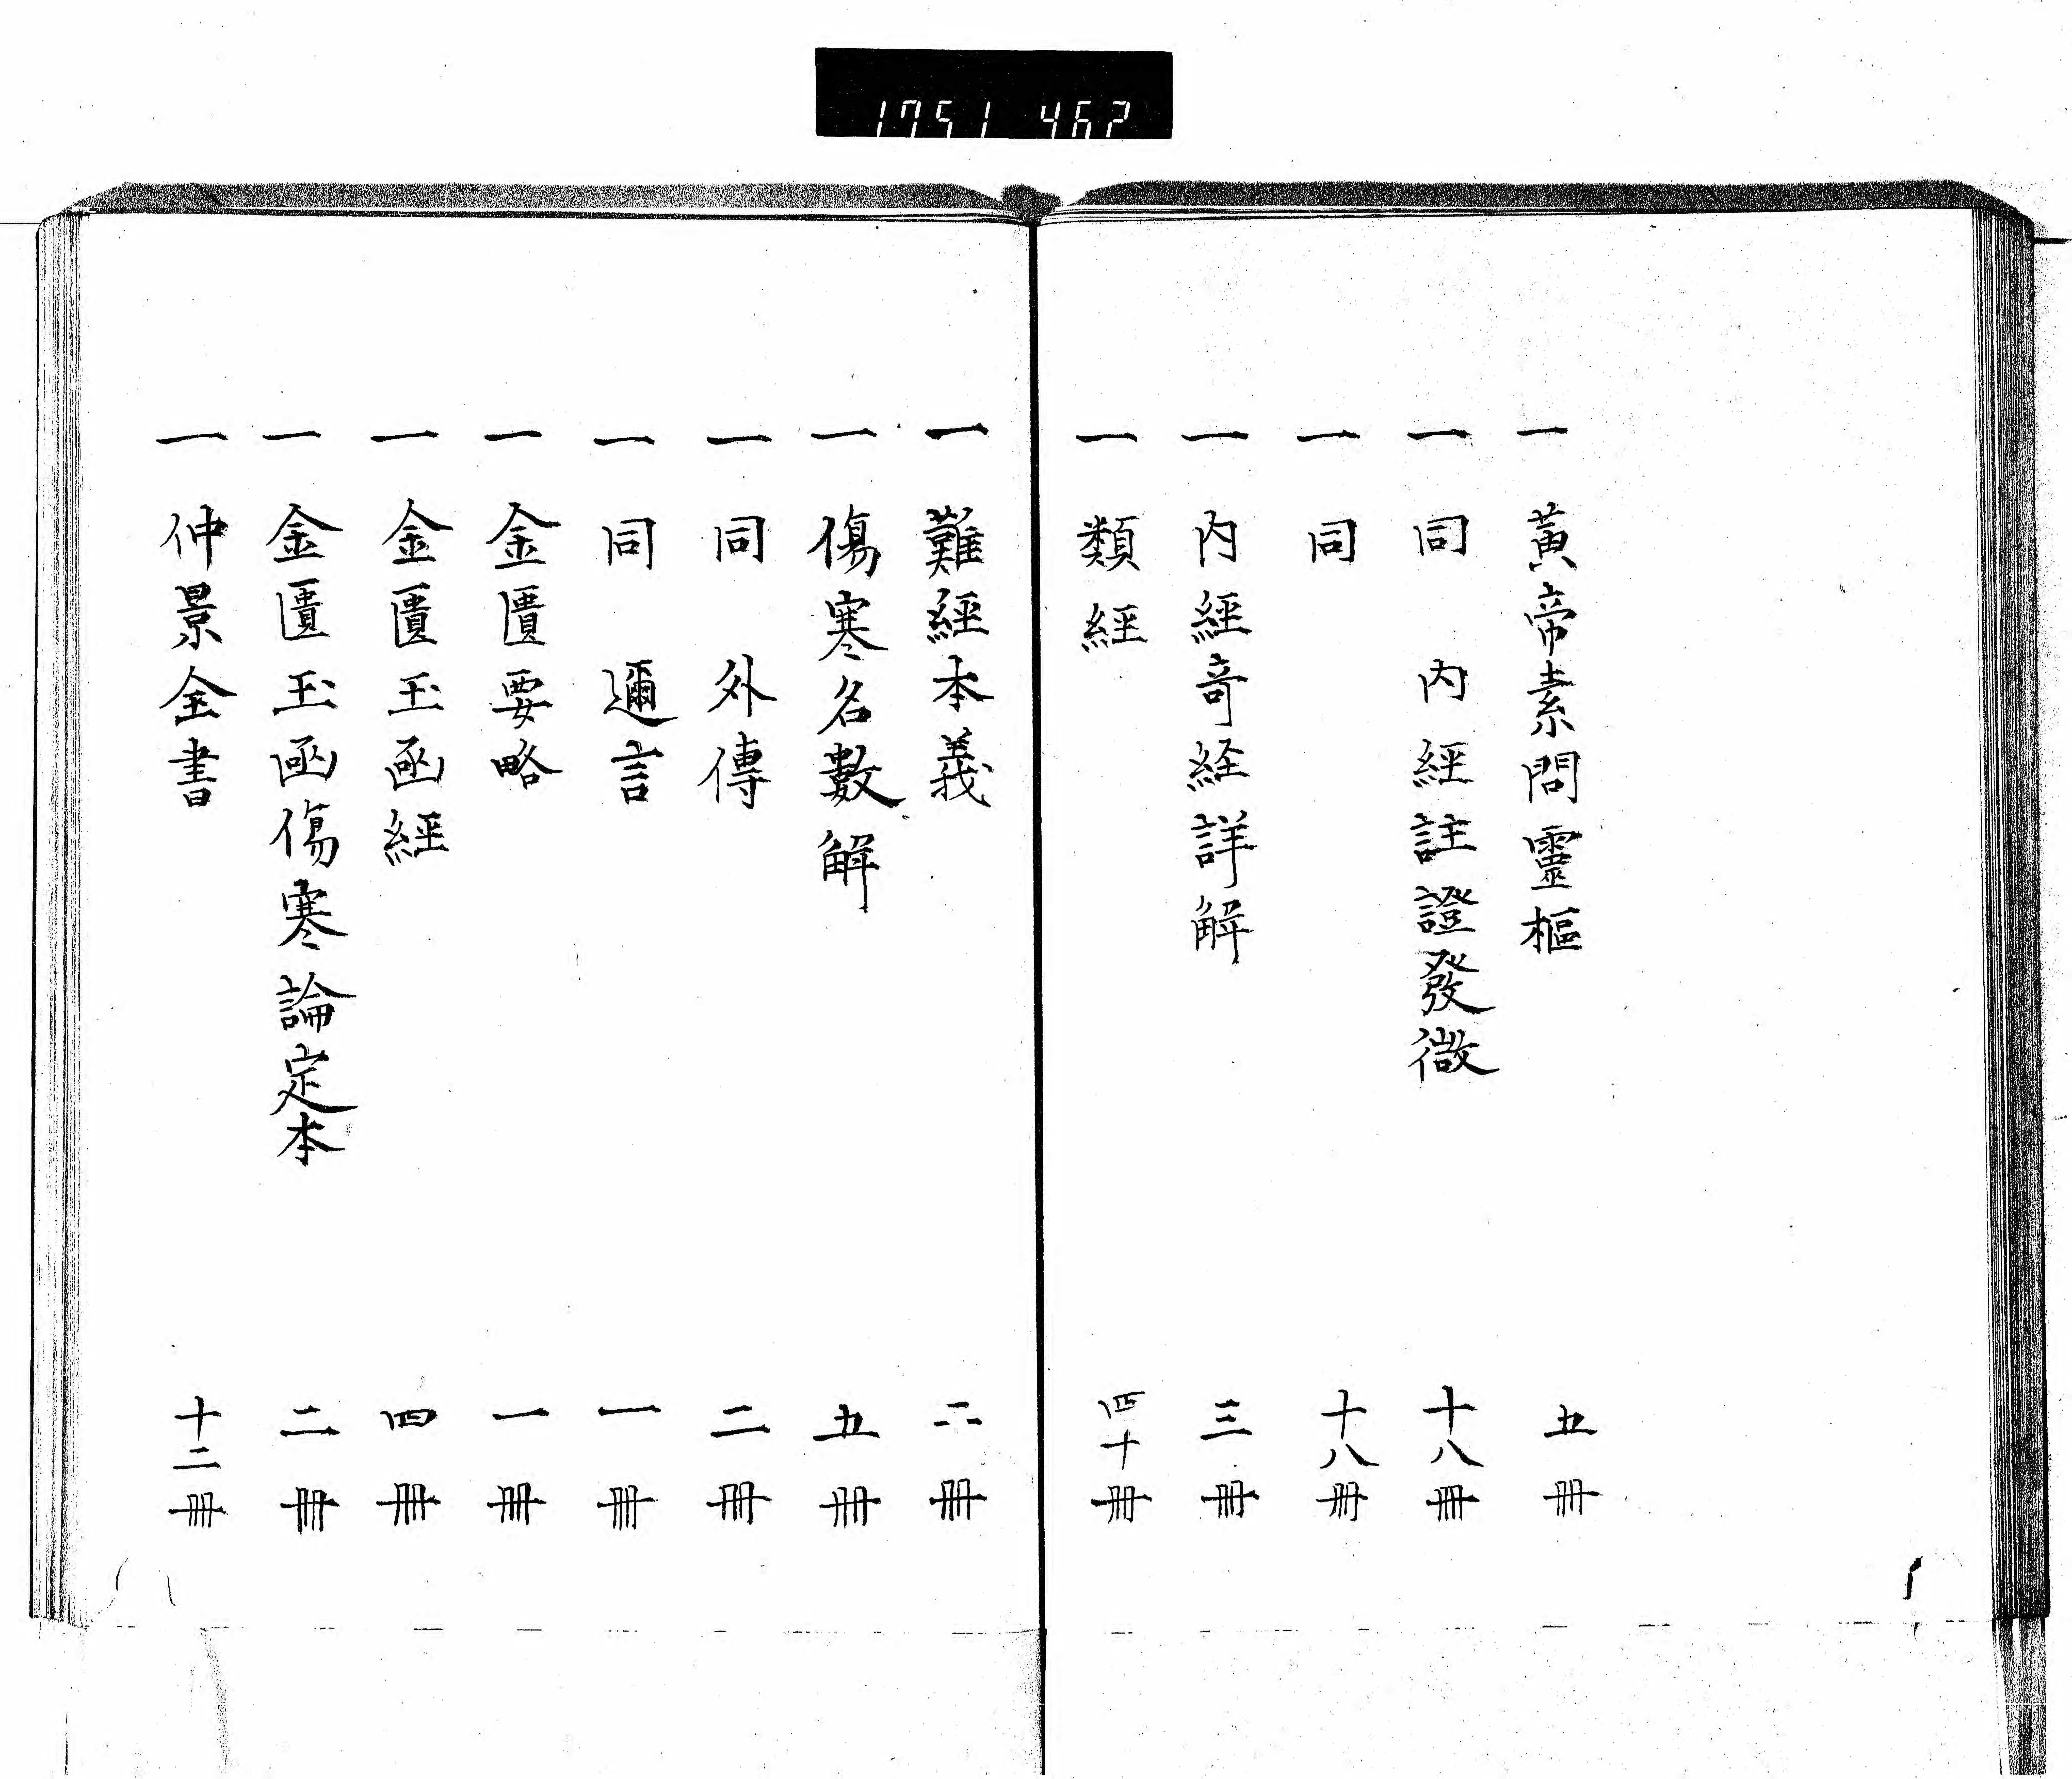 1751 462
一 黄帝素問靈樞 五冊
一 同 内經註證發微 十八冊
一 同 十八冊
一 内經奇経詳解 三冊
一 類經 四十冊
一 難經本義 二冊
一 傷寒名數解 五冊
一 同 外傳 二冊
一 同 邇言 一冊
一 金匱要略 一冊
一 金匱玉函經 四冊
一 金匱玉函傷寒論定本 二冊
一 仲景全書 十二冊